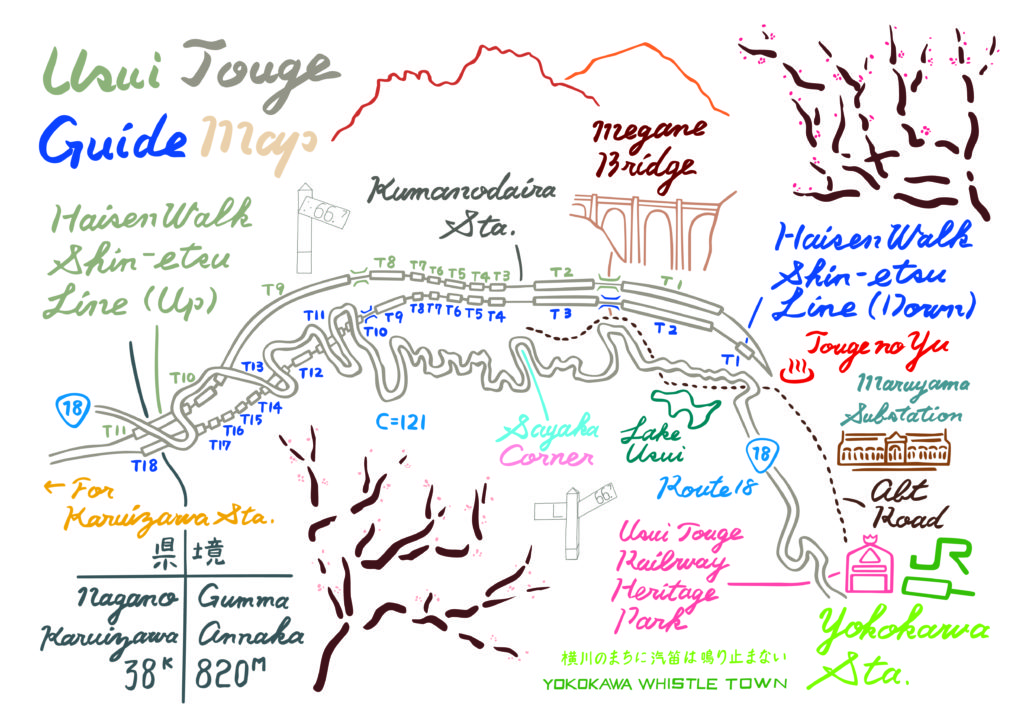 Usui Touge
Guide Map
Megane
Bridge
66.7
Kumanodaira
Sta.
Haisen Walk
Shin-etsu
Line (Up)
Haisen Walk
Shin-etsu
Line (Down)
T9
T8
T7
T6
T5
T4
T3
T2
T1
T11
T10
T9
T8
T7
T6
T5
T4
T3
T2
T1
Touge no Yu
T10
T13
T12
Maruyama
Substation
18
T14
T15
T16
T17
T11
T18
C=121
Sayaka
Corner
Lake
Usui
18
Route 18
← For
Karuizawa Sta.
Abt
Road
66.7
L
県境
Nagano
Gumma
Karuizawa
Annaka
38K
820M
Usui Touge
Railway
Heritage
Park
JR
Yokokawa
Sta.
横川のまちに汽笛は鳴り止まない
YOKOKAWA WHISTLE TOWN